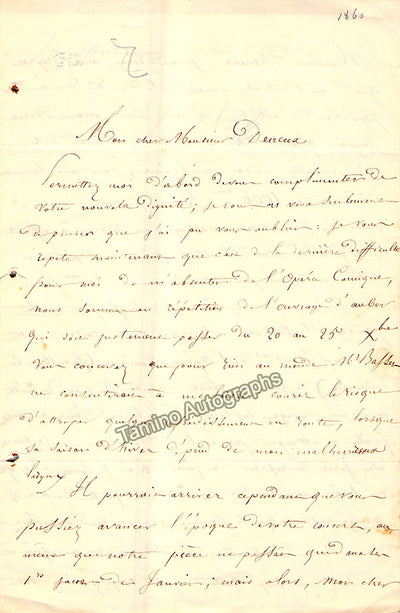 1860
Mon cher Monsieur Dereux
Permettez moi d'abord de vous complimenter de
votre nouvelle dignité; je vous en veux seulement
de penser que j'ai pu vous oublier: je vous
repete maintenant que c'est de la dernière difficulté
pour moi de m'absenter de l'Opéra Comique,
nous sommes en répétition de l'ouvrage d'auber
qui doit justement passer du 20 au 25 Xbre
Vous concevez que pour rien au monde Mr Basset
ne consentirait à me laisser courir le risque
d'attraper quelque refroidissement en route, lorsque
sa saison d'hiver dépend de mon malheureux
larynx. Il pourrait arriver cependant que vous
pussiez avancer l'époque de votre concert, ou
même que notre pièce ne passa que dans les
1ers jours de Janvier; mais alors, mon cher
Tamino Autographs